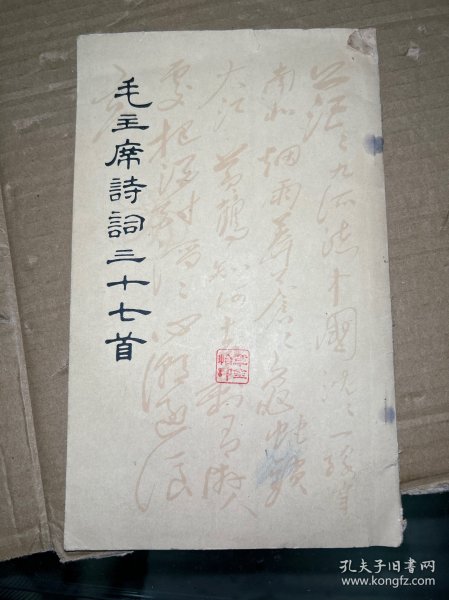 毛主席詩詞三十七首
茫〻九派流中國沉〻一線穿
南北烟雨莽蒼〻龜蛇鎖
大江黃鶴知何去剩有游人
處把酒酹滔〻心潮逐浪
高
孔夫子旧书网
www.kongfz.com